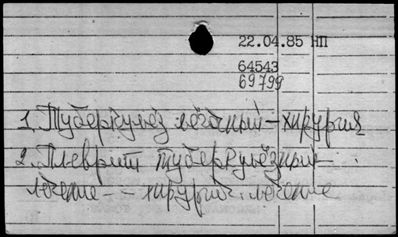 22.04.85 НП
64543
69799
1. Туберкулёз лёгочный – хирургия
2. Плеврит туберкулёзный –
лечение – – хирургич. лечение